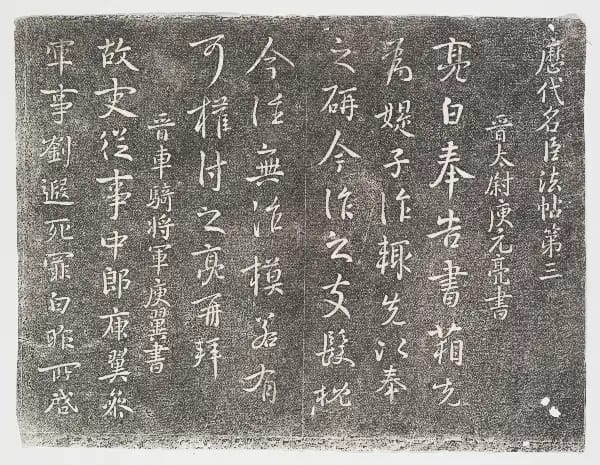 歷代名臣法帖第三
晉太尉庾元亮書
亮白奉告書葙先
為媞子作輒先以奉
之研今作之支髮枕
今往無治模若有
可權付之亮再拜
晉車騎將軍庾翼書
故吏從事中郎庾翼參
軍事劉遐死罪白昨所啓